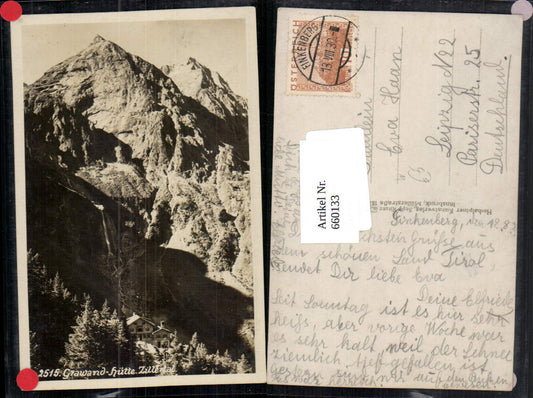 2515. Grawand-Hütte Zillertal.
ÖSTERREICH
FINKENBERG
13.VIII.30
Fräulein
Eva Haan
Leipzig N22
Pariserstr. 25
Deutschland.
Artikel Nr.
660133
Hochalpiner Kunstverlag
Innsbruck,
Finkenberg, den 12.8.
Grüsse aus
dem schönen Land Tirol,
sendet Dir liebe Eva
Deine Elfriede
Seit Sonntag ist es hier sehr
heiß, aber vorige Woche war
es sehr kalt, weil der Schnee
ziemlich tief gefallen ist
Gestern sind wir auf den